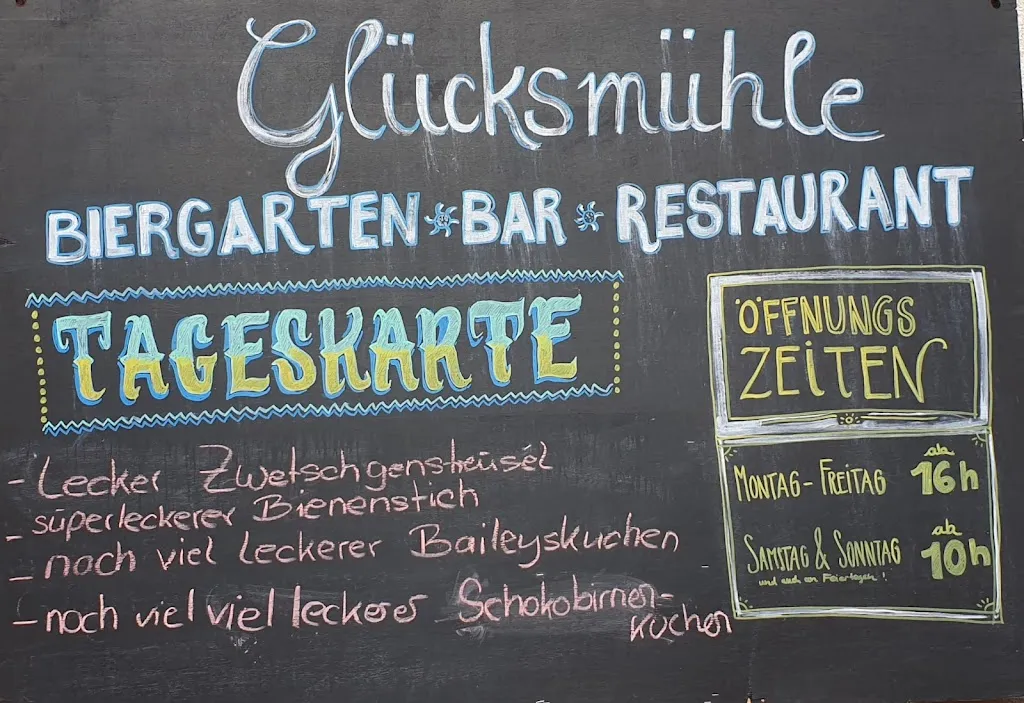 Glücksmühle
BIERGARTEN BAR RESTAURANT
TAGESKARTE
- Lecker Zwetschgenstreusel
- superleckerer Bienenstich
- noch viel leckerer Baileyskuchen
- noch viel viel leckerer Schokobirnen-
kuchen
ÖFFNUNGS
ZEITEN
MONTAG - FREITAG ab 16h
SAMSTAG & SONNTAG ab 10h
und auch an Feiertagen!